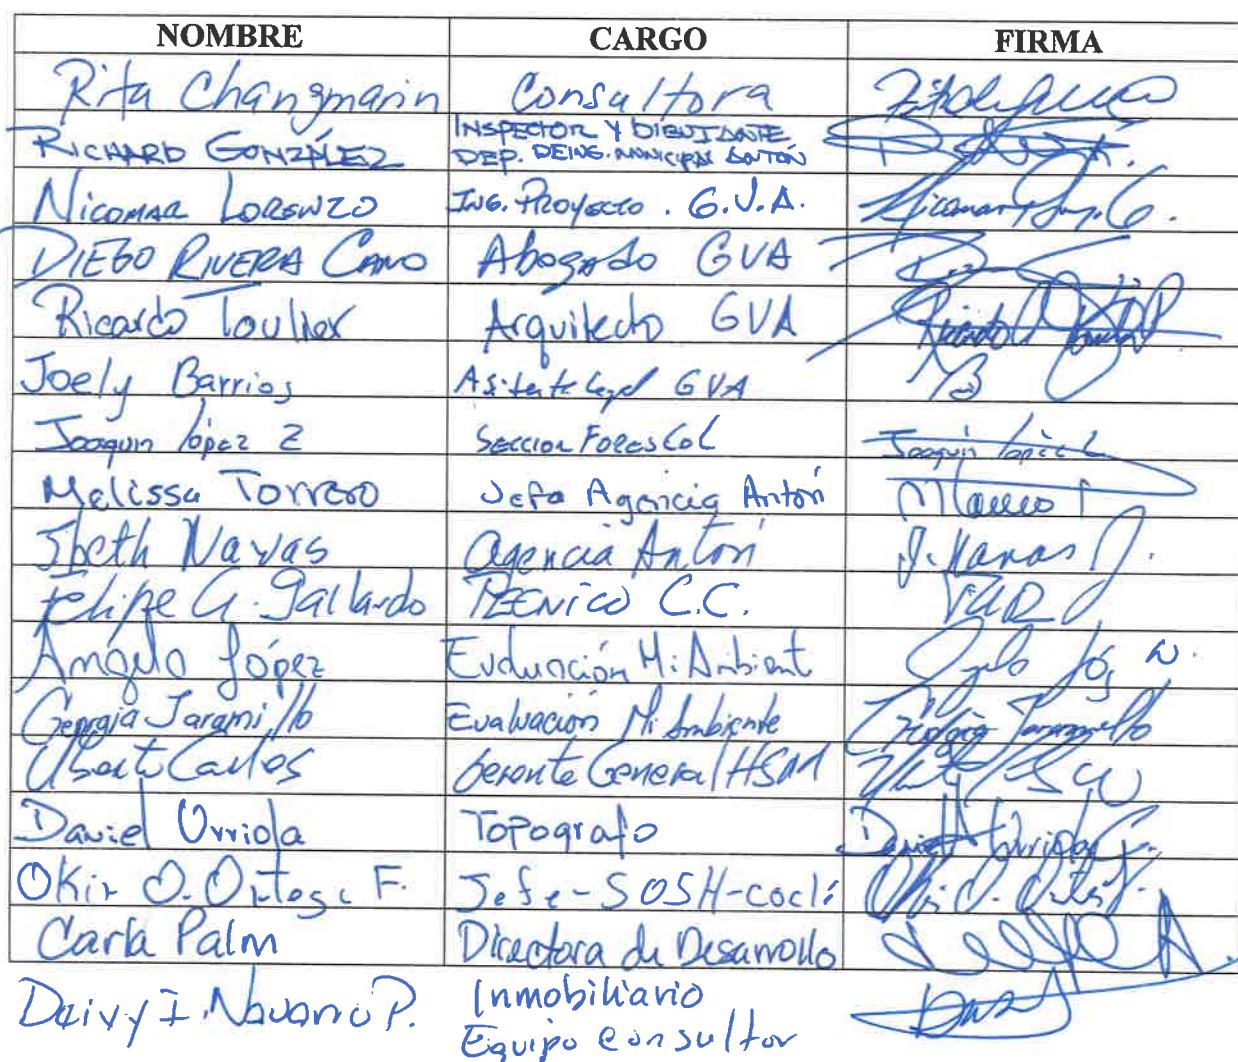 NOMBRE CARGO FIRMA
Rita Changmarin Consultora
RICHARD GONZÁLEZ INSPECTOR Y DIBUJANTE
DEP. DE ING. MUNICIPAL ANTÓN
Nicomar Lorenzo ING. Proyecto . G.V.A.
DIEGO RIVERA CANO Abogado GVA
Ricardo Toulier Arquitecto GVA Ricardo
Joely Barrios Asitente Legal GVA
Joaquin lópez Z Seccion Forestal Joaquín lópez
Melissa Torrero Jefa Agencia Antón
Ibeth Navas agencia Antón I. Navas J.
Felipe G. Gallardo TECNico C.C.
Angelo López Evaluación Mi Ambient
Georgia Jaramillo Evaluación Mi Ambiente Georgia Jaramillo
Carlos Gerente General HSM
Daniel Urriola Topografo Daniel Urriola
Okir O. Ortega F. Jefe-SOSH-coclé
Carla Palm Directora de Desarrollo
Deivy I. Navarro P. Inmobiliario
Equipo consultor